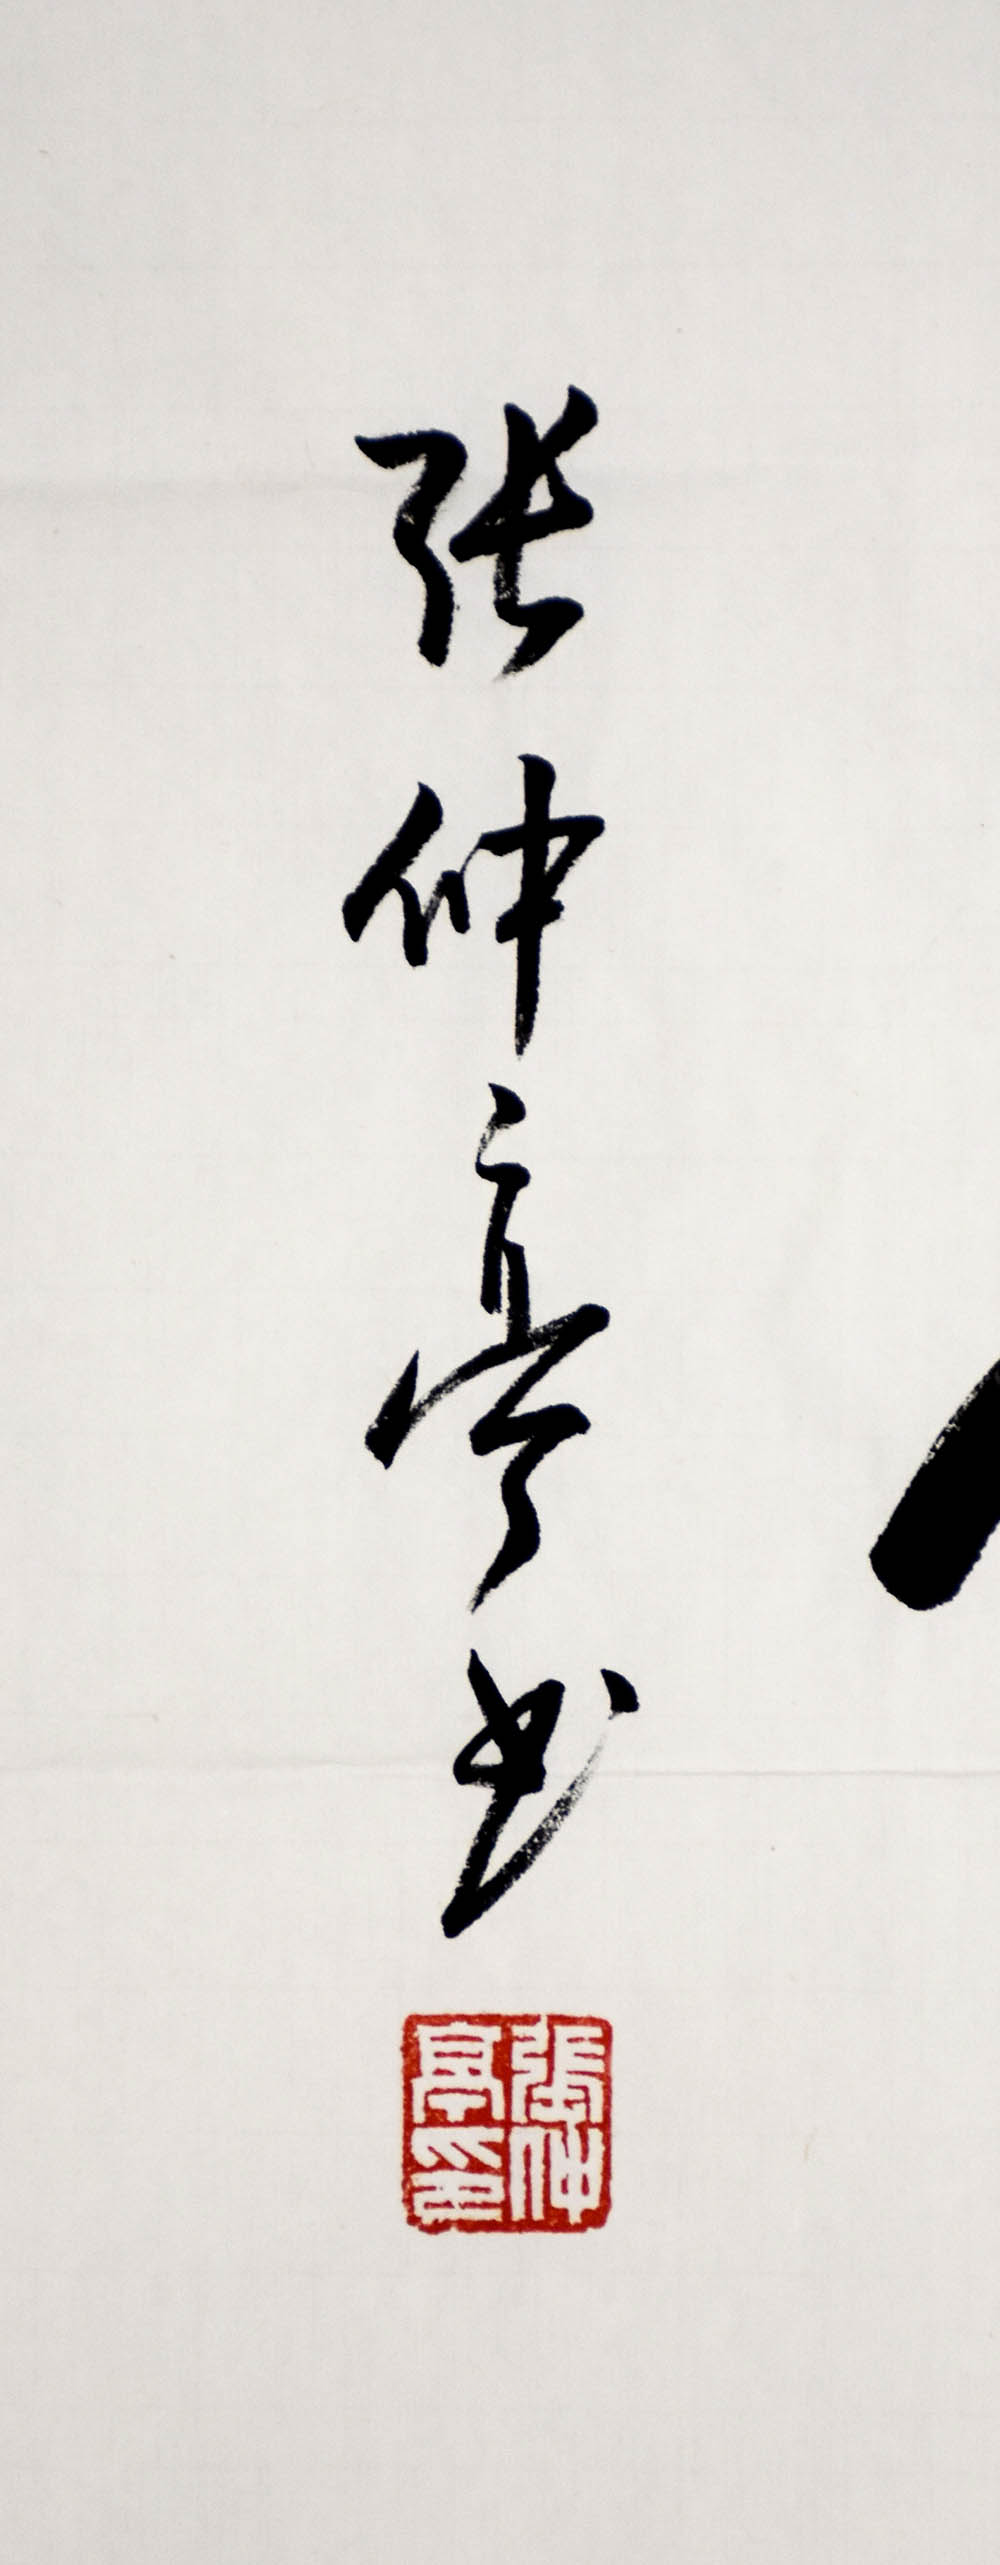 张仲亭书
張仲
亭印